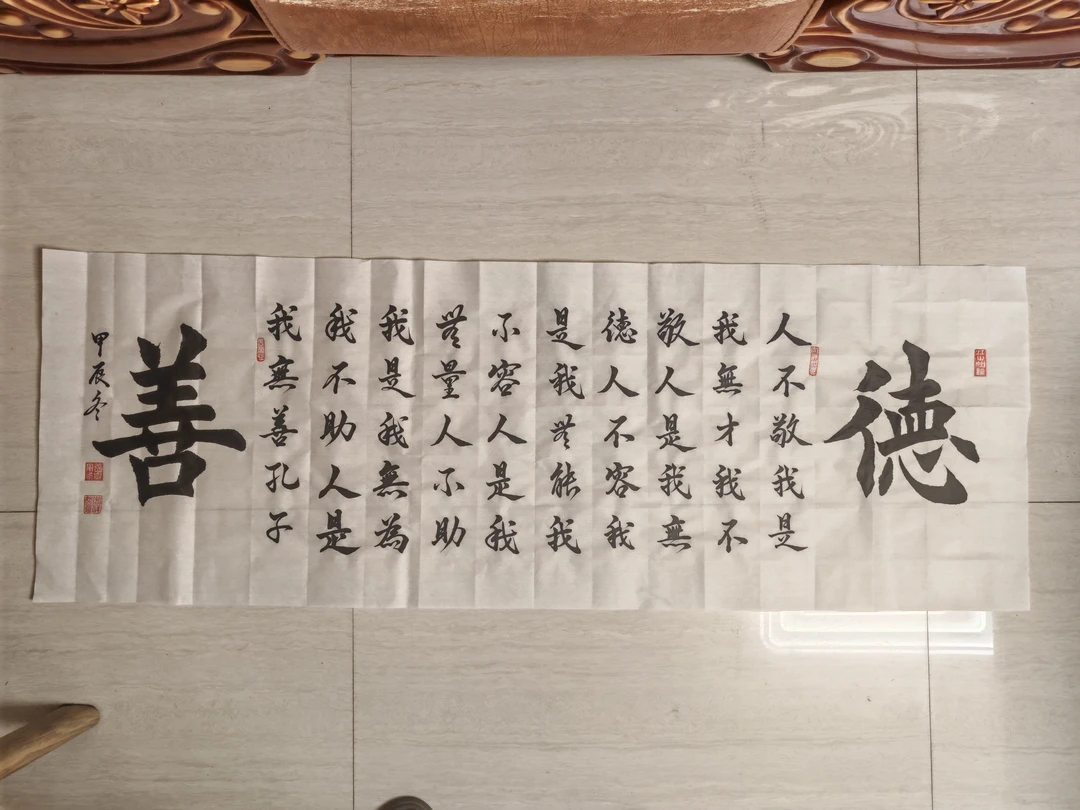 德
人不敬我是
我無才我不
敬人是我無
德人不容我
是我無能我
不容人是我
無量人不助
我是我無為
我不助人是
我無善孔子
善
甲辰冬